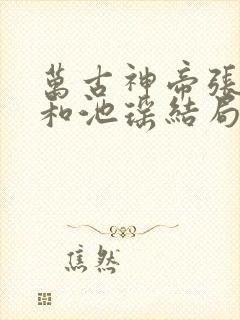 萬古神帝張
和池瑤結局
焦然